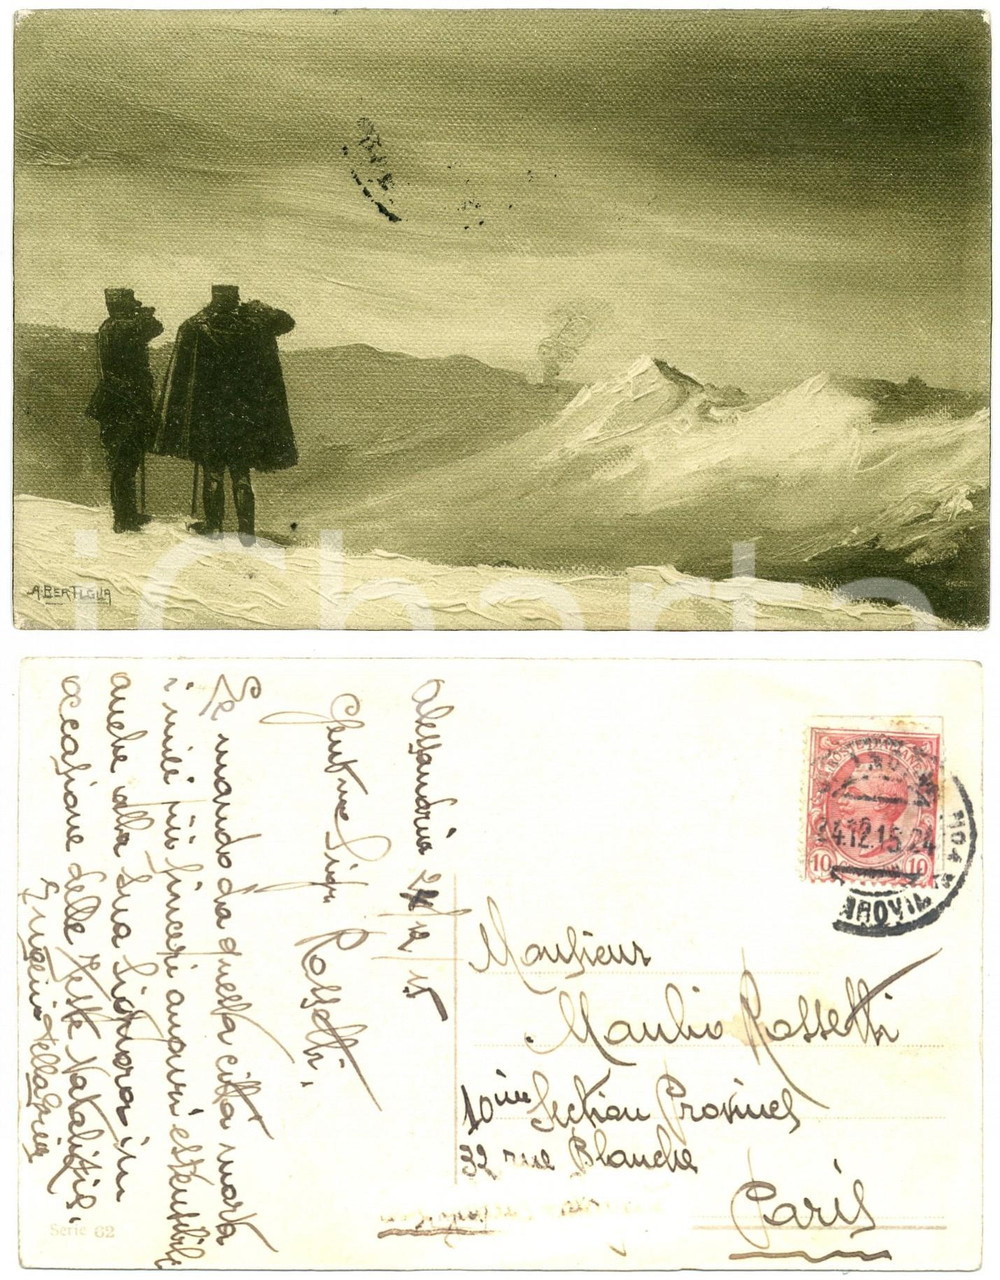 A. BERTIGLIA
iCharta
Alessandria 24/12 15
Gent.mo Sig.r Rossetti,
Le mando da questa città morta
i miei più sinceri auguri estensibili
anche alla Sua Signora in
occasione delle Feste Natalizie.
Eugenio
Serie 62
POSTE ITALIANE
24.12.15 24
10 10
Monsieur
Manlio Rossetti
10ème Section Provinces
32 rue Blanche
Paris